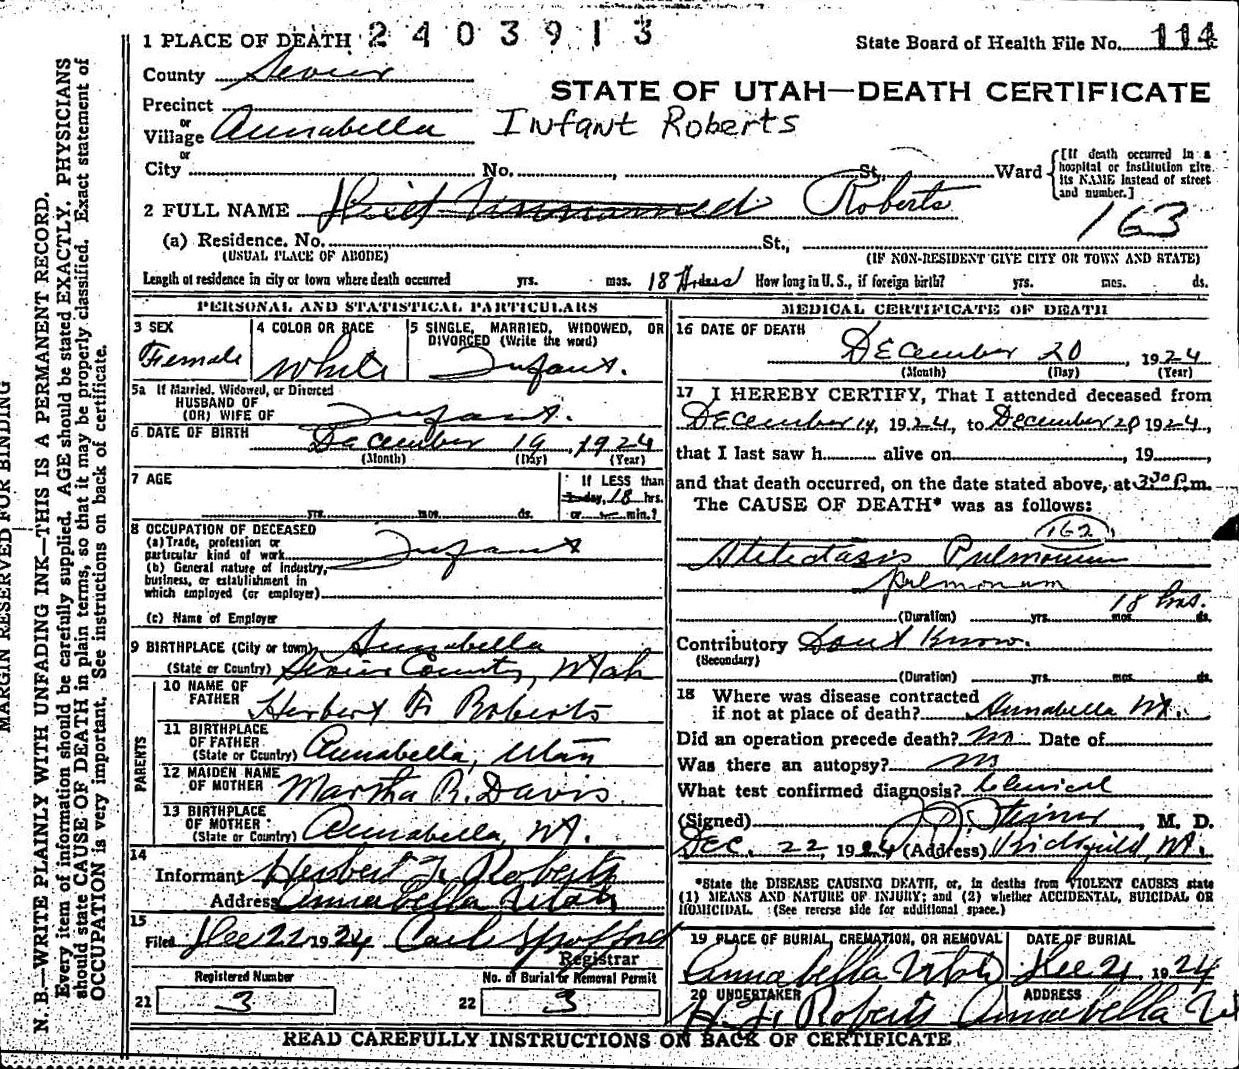 MARGIN RESERVED FOR BINDING
N. B.—WRITE PLAINLY WITH UNFADING INK—THIS IS A PERMANENT RECORD.
Every item of information should be carefully supplied. AGE should be stated EXACTLY. PHYSICIANS
should state CAUSE OF DEATH in plain terms, so that it may be properly classified. Exact statement of
OCCUPATION is very important. See instructions on back of certificate.
1 PLACE OF DEATH 2403913
State Board of Health File No. 114
County Sevier
STATE OF UTAH—DEATH CERTIFICATE
Precinct
or
Village Annabella Infant Roberts
or
City No. , St., Ward
[If death occurred in a
hospital or institution give
its NAME instead of street
and number.]
2 FULL NAME Unnamed Roberts
163
(a) Residence. No. St.,
(USUAL PLACE OF ABODE) (IF NON-RESIDENT GIVE CITY OR TOWN AND STATE)
Length of residence in city or town where death occurred yrs. mos. 18 How long in U. S., if foreign birth? yrs. mos. ds.
PERSONAL AND STATISTICAL PARTICULARS
3 SEX Female
4 COLOR OR RACE White
5 SINGLE, MARRIED, WIDOWED, OR
DIVORCED (Write the word)
Infant.
5a If Married, Widowed, or Divorced
HUSBAND OF
(OR) WIFE OF Infant.
6 DATE OF BIRTH December 19, 1924
(Month) (Day) (Year)
7 AGE yrs. mos. ds.
If LESS than
1 day, 18 hrs.
or min.?
8 OCCUPATION OF DECEASED
(a) Trade, profession or
particular kind of work Infant
(b) General nature of industry,
business, or establishment in
which employed (or employer)
(c) Name of Employer
9 BIRTHPLACE (City or town) Annabella
(State or Country) Sevier County, Utah
PARENTS
10 NAME OF
FATHER Herbert F. Roberts
11 BIRTHPLACE
OF FATHER
(State or Country) Annabella, Utah
12 MAIDEN NAME
OF MOTHER Martha R. Davis
13 BIRTHPLACE
OF MOTHER
(State or Country) Annabella, Ut.
14
Informant Herbert F. Roberts
Address Annabella Utah
15
Filed Dec 22 1924 Carl Spafford
Registrar
Registered Number
21 3
No. of Burial or Removal Permit
22 3
MEDICAL CERTIFICATE OF DEATH
16 DATE OF DEATH
December 20, 1924
(Month) (Day) (Year)
17 I HEREBY CERTIFY, That I attended deceased from
December 19, 1924, to December 20 1924,
that I last saw h alive on , 19 ,
and that death occurred, on the date stated above, at 3:30 P.m.
The CAUSE OF DEATH* was as follows:
162
Atelectasis Pulmonum
pulmonum
18 hrs.
(Duration) yrs. mos. ds.
Contributory Dont Know.
(Secondary)
(Duration) yrs. mos. ds.
18 Where was disease contracted
if not at place of death? Annabella Ut.
Did an operation precede death? no Date of
Was there an autopsy? no
What test confirmed diagnosis? Clinical
(Signed) , M. D.
Dec. 22, 1924 (Address) Richfield, Ut.
*State the DISEASE CAUSING DEATH, or, in deaths from VIOLENT CAUSES state
(1) MEANS AND NATURE OF INJURY; and (2) whether ACCIDENTAL, SUICIDAL OR
HOMICIDAL. (See reverse side for additional space.)
19 PLACE OF BURIAL, CREMATION, OR REMOVAL
Annabella Utah
DATE OF BURIAL
Dec 21 1924
20 UNDERTAKER
H. F. Roberts
ADDRESS
Annabella Ut
READ CAREFULLY INSTRUCTIONS ON BACK OF CERTIFICATE